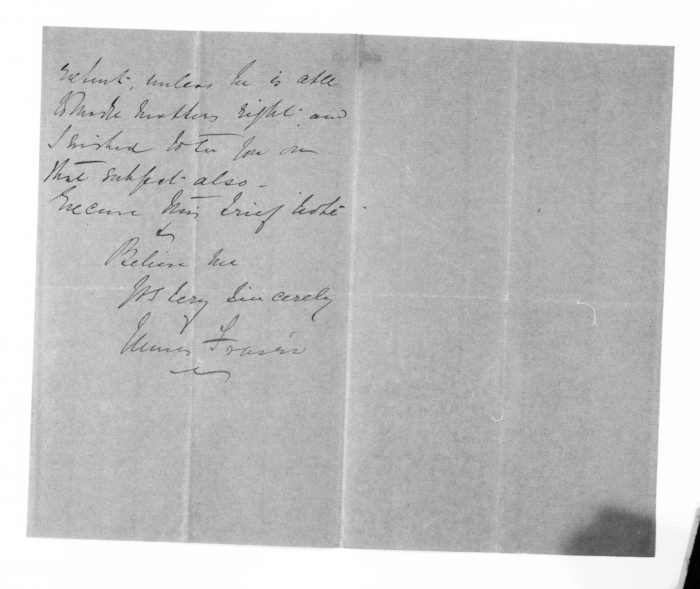 extent, unless he is able
to make matters right and
I wished to see you on
that subject also -
Excuse this brief note
&
Believe me
Yrs Very Sincerely
Fraser